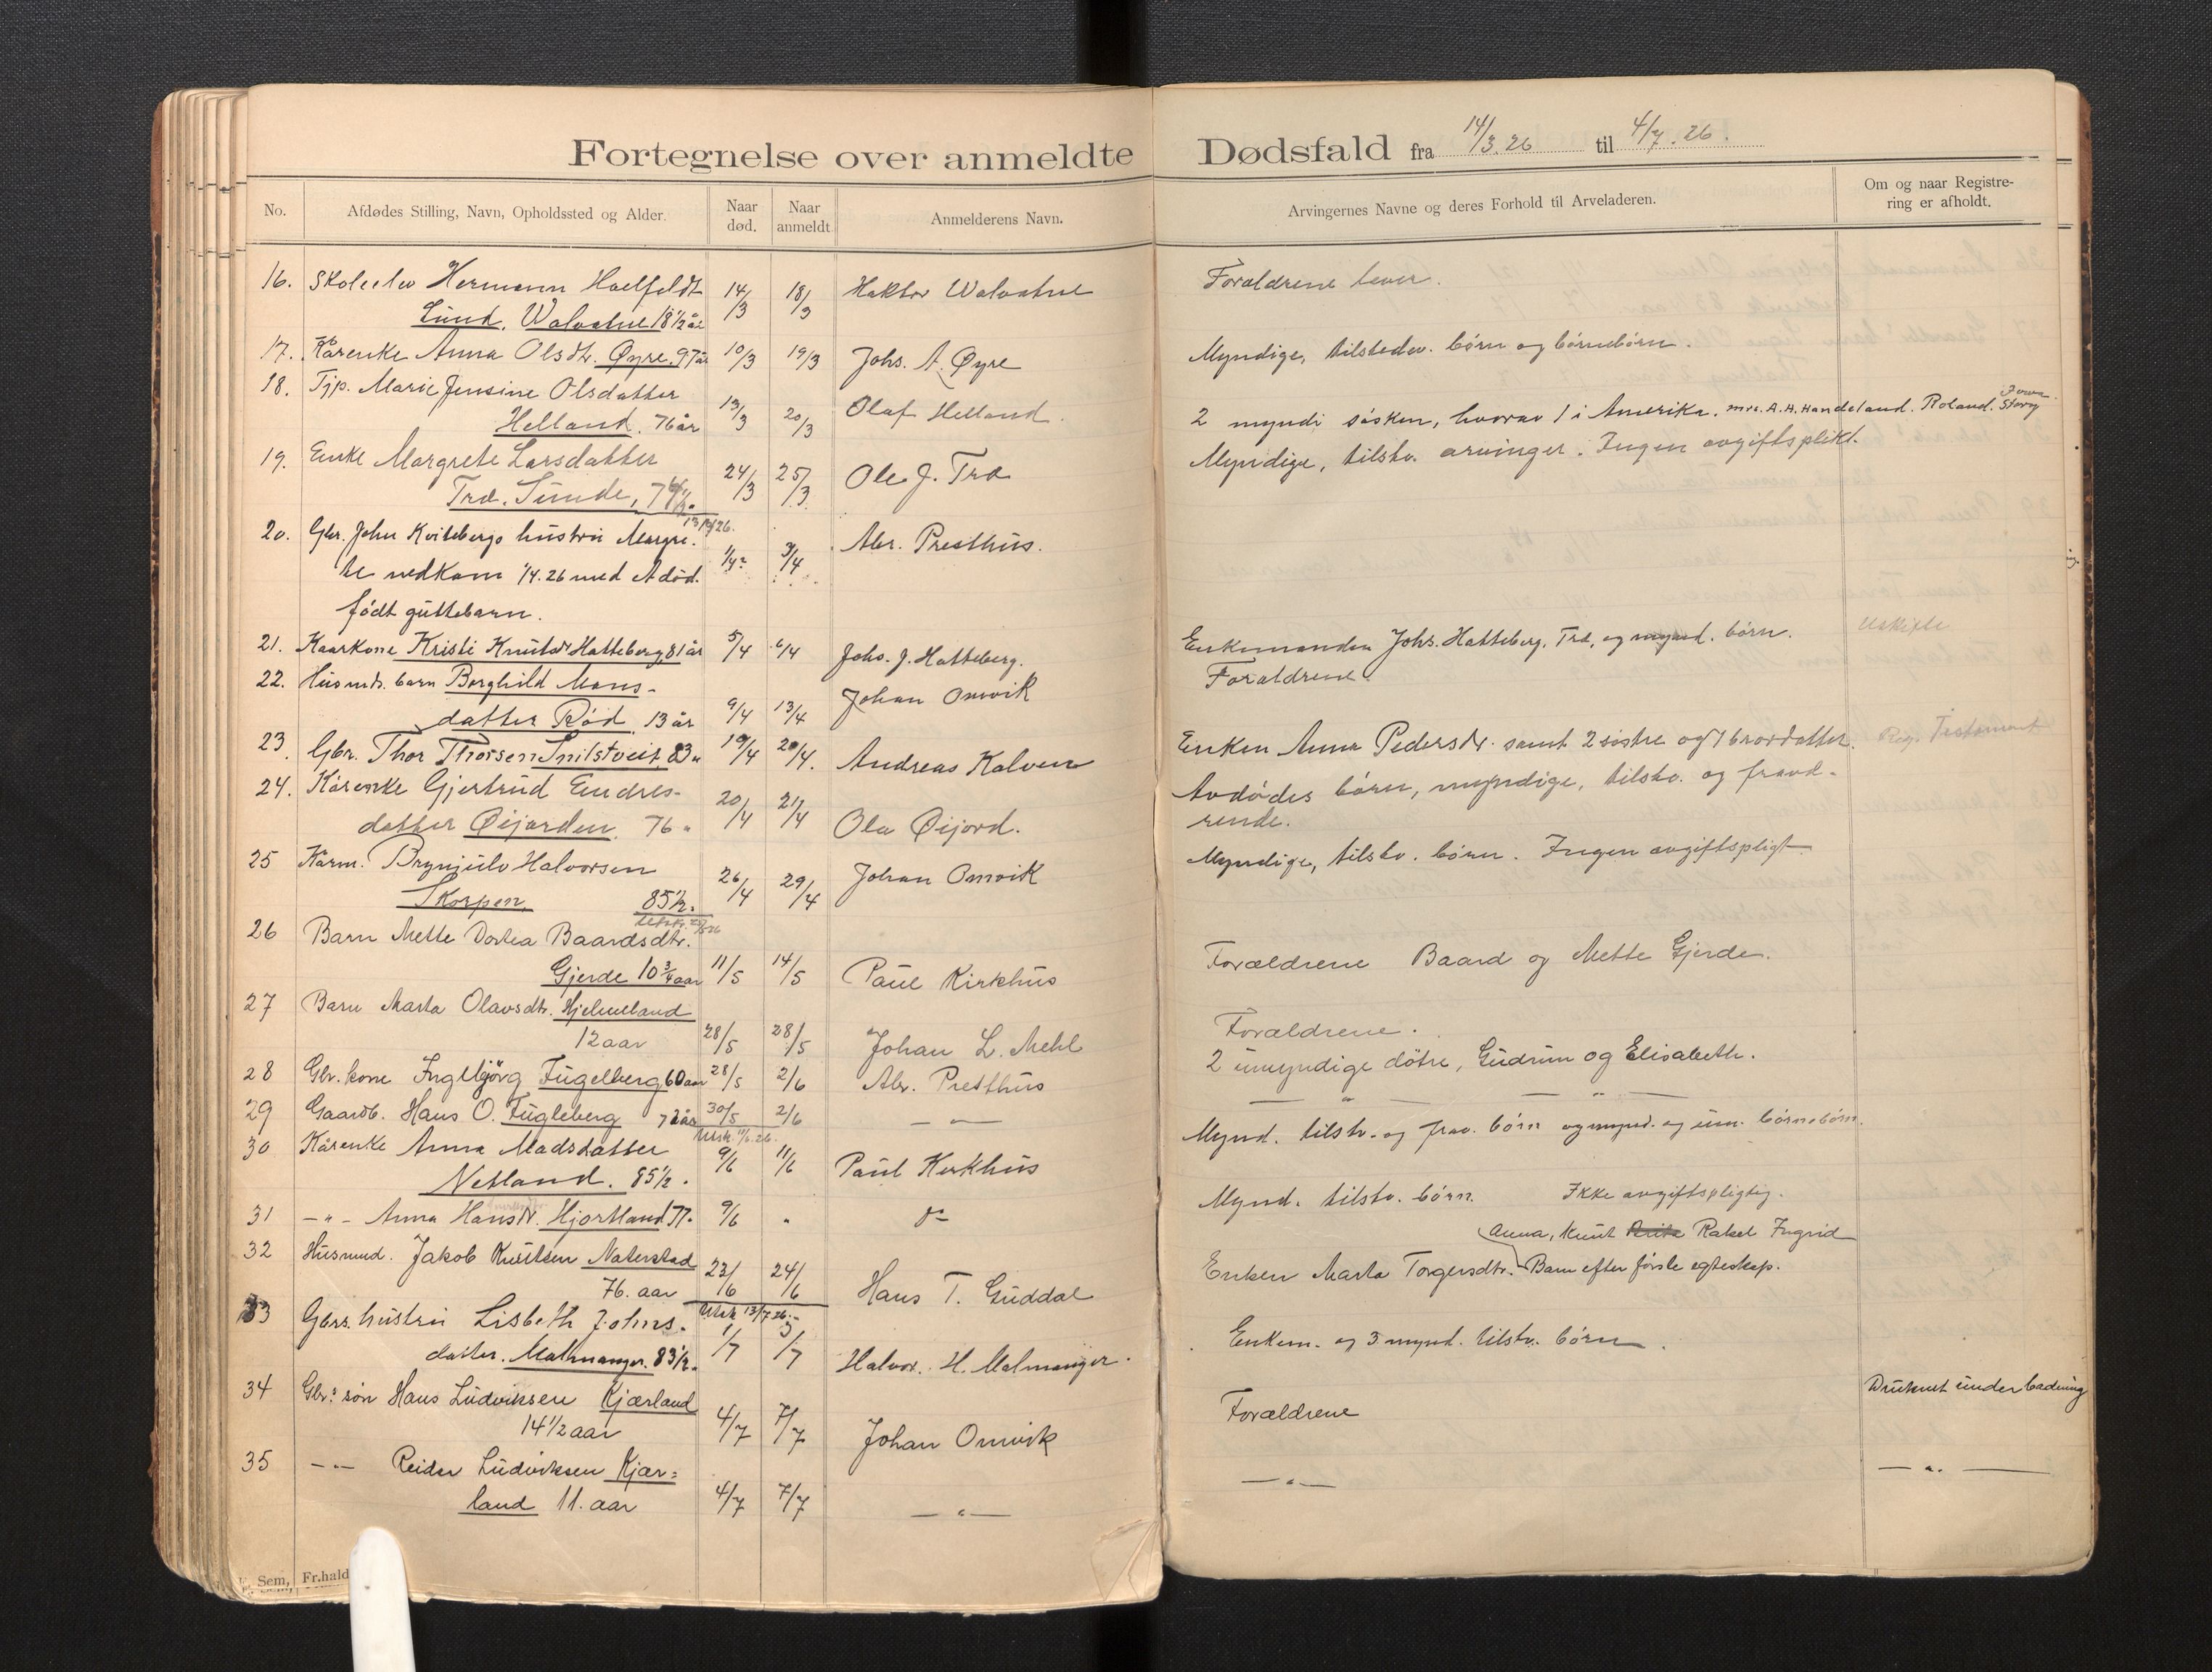 Fortegnelse over anmeldte Dødsfald fra 14/3.26 til 4/7.26.
No. Afdødes Stilling, Navn, Opholdssted og Alder. Naar død. Naar anmeldt Anmelderens Navn. Arvingernes Navne og deres Forhold til Arveladeren. Om og naar Registrering er afholdt.
16. Skoleelev Hermann Hoelfeldt 14/3 18/3 Haktor Walvatne Forældrene lever.
Lund. Walvatne 18 1/2 år
17. Kårenke Anna Olsdtr. Øyre. 97 år 10/3 19/3 Johs. A. Øyre Myndige, tilstedev. børn og børnebørn.
18. Tjp. Marie Jensine Olsdatter
Helland. 76 år 13/3 20/3 Olaf Helland. 2 myndi søsken, hvorav 1 i Amerika. mrs. A.H. Handeland. Roland. Story Iowa
19. Enke Margrete Larsdatter Myndige, tilstv. arvinger. Ingen avgiftsplikt.
Træ. Sunde, 24/3 25/3 Ole J. Træ
20. Gbr. John Kvitebergs hustru Margre-
te nedkom 1/4.26 med et død- 1/4 3/4 Abr. Presthus.
født guttebarn.
21. Kaarkone Kristi Knutsdtr Hatteberg, 81 år 5/4 6/4 Johs. J. Hatteberg. Enkemanden Johs. Hatteberg, Træ, og mynd. børn. Uskifte
22. Husmds. barn Borghild Mons- Forældrene
datter Rød. 13 år 9/4 13/4 Johan Omvik
23. Gbr. Thor Thorsen Snilstveit, 83 " 19/4 20/4. Andreas Kalven Enken Anna Pedersdtr. samt 2 søstre og 1 brordatter. Reg. Testament
24. Kårenke Gjertrud Endres- Avdødes børn, myndige, tilstv. og fravæ-
datter Øijorden. 76 " 20/4 21/4 Ola Øijord. rende.
25 Kårm. Brynjulv Halvorsen Myndige, tilstv. børn. Ingen avgiftspligt
Skorpen. 85 1/2. 26/4 29/4 Johan Omvik
26 Barn Mette Dortea Baardsdtr.
Gjerde 10 3/4 aar 11/5 14/5 Paul Kirkhus Forældrene Baard og Mette Gjerde.
27 Barn Marta Olavsdtr. Hjelmeland
12 aar 28/5 28/5 Johan L. Mehl Forældrene.
28 Gbr. kone Ingebjörg Fugelberg 60 aar 28/5 2/6 Abr. Presthus 2 umyndige döttre, Gudrun og Elisabeth.
29 Gaardb. Hans O. Fugleberg 72 år 30/5 2/6 — " — — " — " —
Utsk. 11/6.26.
30 Kårenke Anna Madsdatter Mynd. tilstv. og frav. børn og mynd. og um. børnebørn.
Netland. 85 1/2. 9/6 11/6 Paul Kirkhus
31 - " - Anna Hansdtr. Hjortland 77. 9/6 " do Mynd. tilstv. børn. Ikke avgiftspligtig.
Anna, Knut Rakel Ingrid
32 Husmd. Jakob Knutsen Naterstad Enken Marta Torgersdtr. Barn efter første egteskap.
76. aar 23/6 24/6 Hans T. Guddal
Utsk 13/7 26.
33 Gbrs. hustru Lisbeth Johns-
datter. Malmanger. 83 1/2. 1/7 3/7 Halvor. H. Malmanger. Enkem. og 3 mynd. tilstv. børn.
34 Gbrs. søn Hans Ludviksen Kjærland Druknet under badning
14 1/2 aar 4/7 7/7 Johan Omvik Forældrene
35 - " - Reidar Ludviksen Kjær=
land 11. aar 4/7 7/7 — " — — " — — " —
Sem, Fr.hald